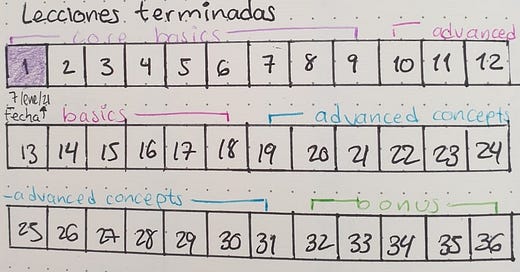 Lecciones terminadas
core basics advanced
1 2 3 4 5 6 7 8 9 10 11 12
7/ene/21
Fecha↑ basics advanced concepts
13 14 15 16 17 18 19 20 21 22 23 24
advanced concepts bonus
25 26 27 28 29 30 31 32 33 34 35 36